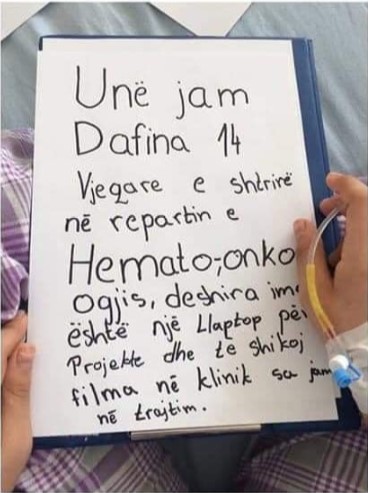 Unë jam
Dafina 14
Vjeçare e shtrirë
në repartin e
Hemato;onko
ogjis, deshira ime
është një Llaptop për
Projekte dhe të shikoj
filma në klinik sa jam
në trajtim.